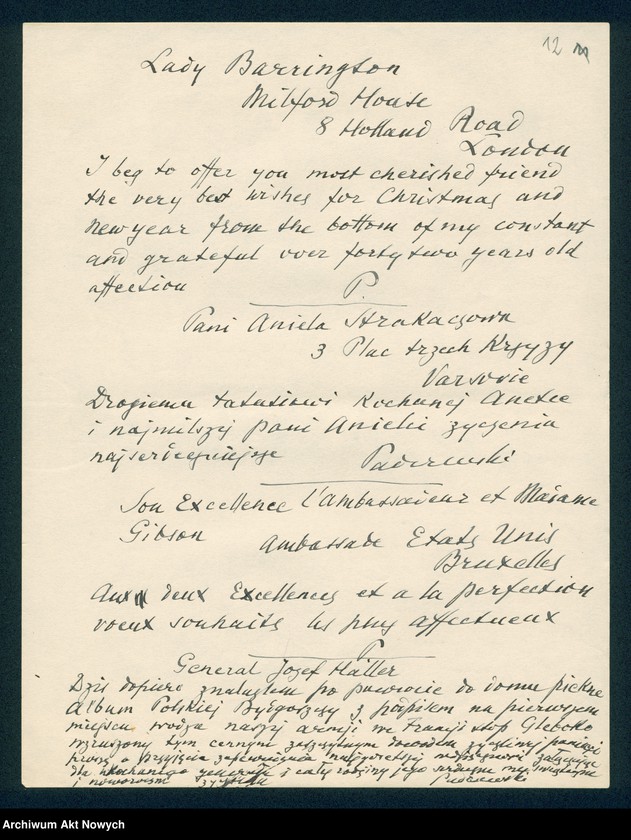 12
Lady Barrington
Milford House
8 Holland Road
London
I beg to offer you most cherished friend
the very best wishes for Christmas and
New year from the bottom of my constant
and grateful over forty two years old
affection
P.
Pani Aniela Strakaczowa
3 Plac trzech Krzyzy
Varsovie
Drogiemu tatusiowi Kochanej Anetce
i najmilszej pani Anieli zyczenia
najserdeczniejsze Paderewski
Son Excellence l'Ambassadeur et Madame
Gibson
Ambassade Etats Unis
Bruxelles
Aux deux Excellences et a la perfection
voeux souhaits les plus affectueux
P.
General Jozef Haller
Dzis dopiero znalazlem po powrocie do domu piekne
album Polskiej Bydgoszczy z podpisem na pierwszem
miejscu wodza naszej armji we Francji stop Gleboko
wzruszony tym cennym zaszczytnym dowodem zyczliwej pamieci
prosze o przyjecie zapewnienia najgoretszej wdziecznosci zalaczajac
dla kochanego generala i calej rodziny jego serdeczne
i noworoczne zyczenia Paderewski
Archiwum Akt Nowych